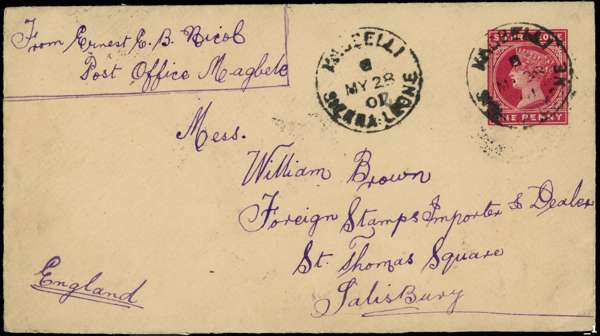 From Ernest E. B. Nicol
Post Office Magbele
MABELLI
B
MY 28
01
SIERRA LEONE
SIERRA LEONE
ONE PENNY
Mess.
William Brown
Foreign Stamps Importer & Dealer
St. Thomas Square
Salisbury
England